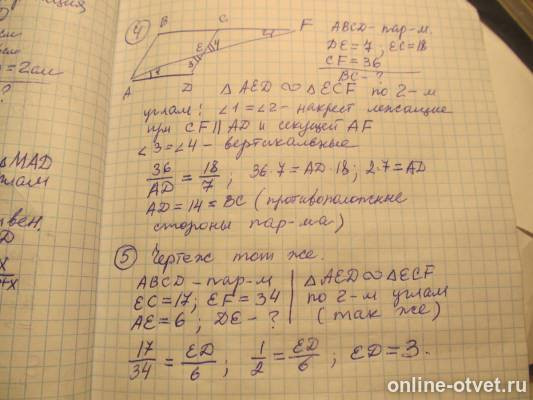 = 2см
MAD
глам
вен.
④
B C F
E 4
A D
1 3
ABCD - пар-м.
DE = 7; EC = 18
CF = 36
BC - ?
△ AED ∞ △ECF по 2-м
углам: ∠1 = ∠2 - накрест лежащие
при CF || AD и секущей AF
∠3 = ∠4 - вертикальные
36/AD = 18/7; 36·7 = AD·18; 2·7 = AD
AD = 14 = BC (противоположные
стороны пар-ма)
⑤ Чертеж тот же.
ABCD - пар-м
EC = 17; EF = 34
AE = 6; DE - ?
△AED ∞ △ECF
по 2-м углам
(так же)
17/34 = ED/6; 1/2 = ED/6; ED = 3.
online-otvet.ru